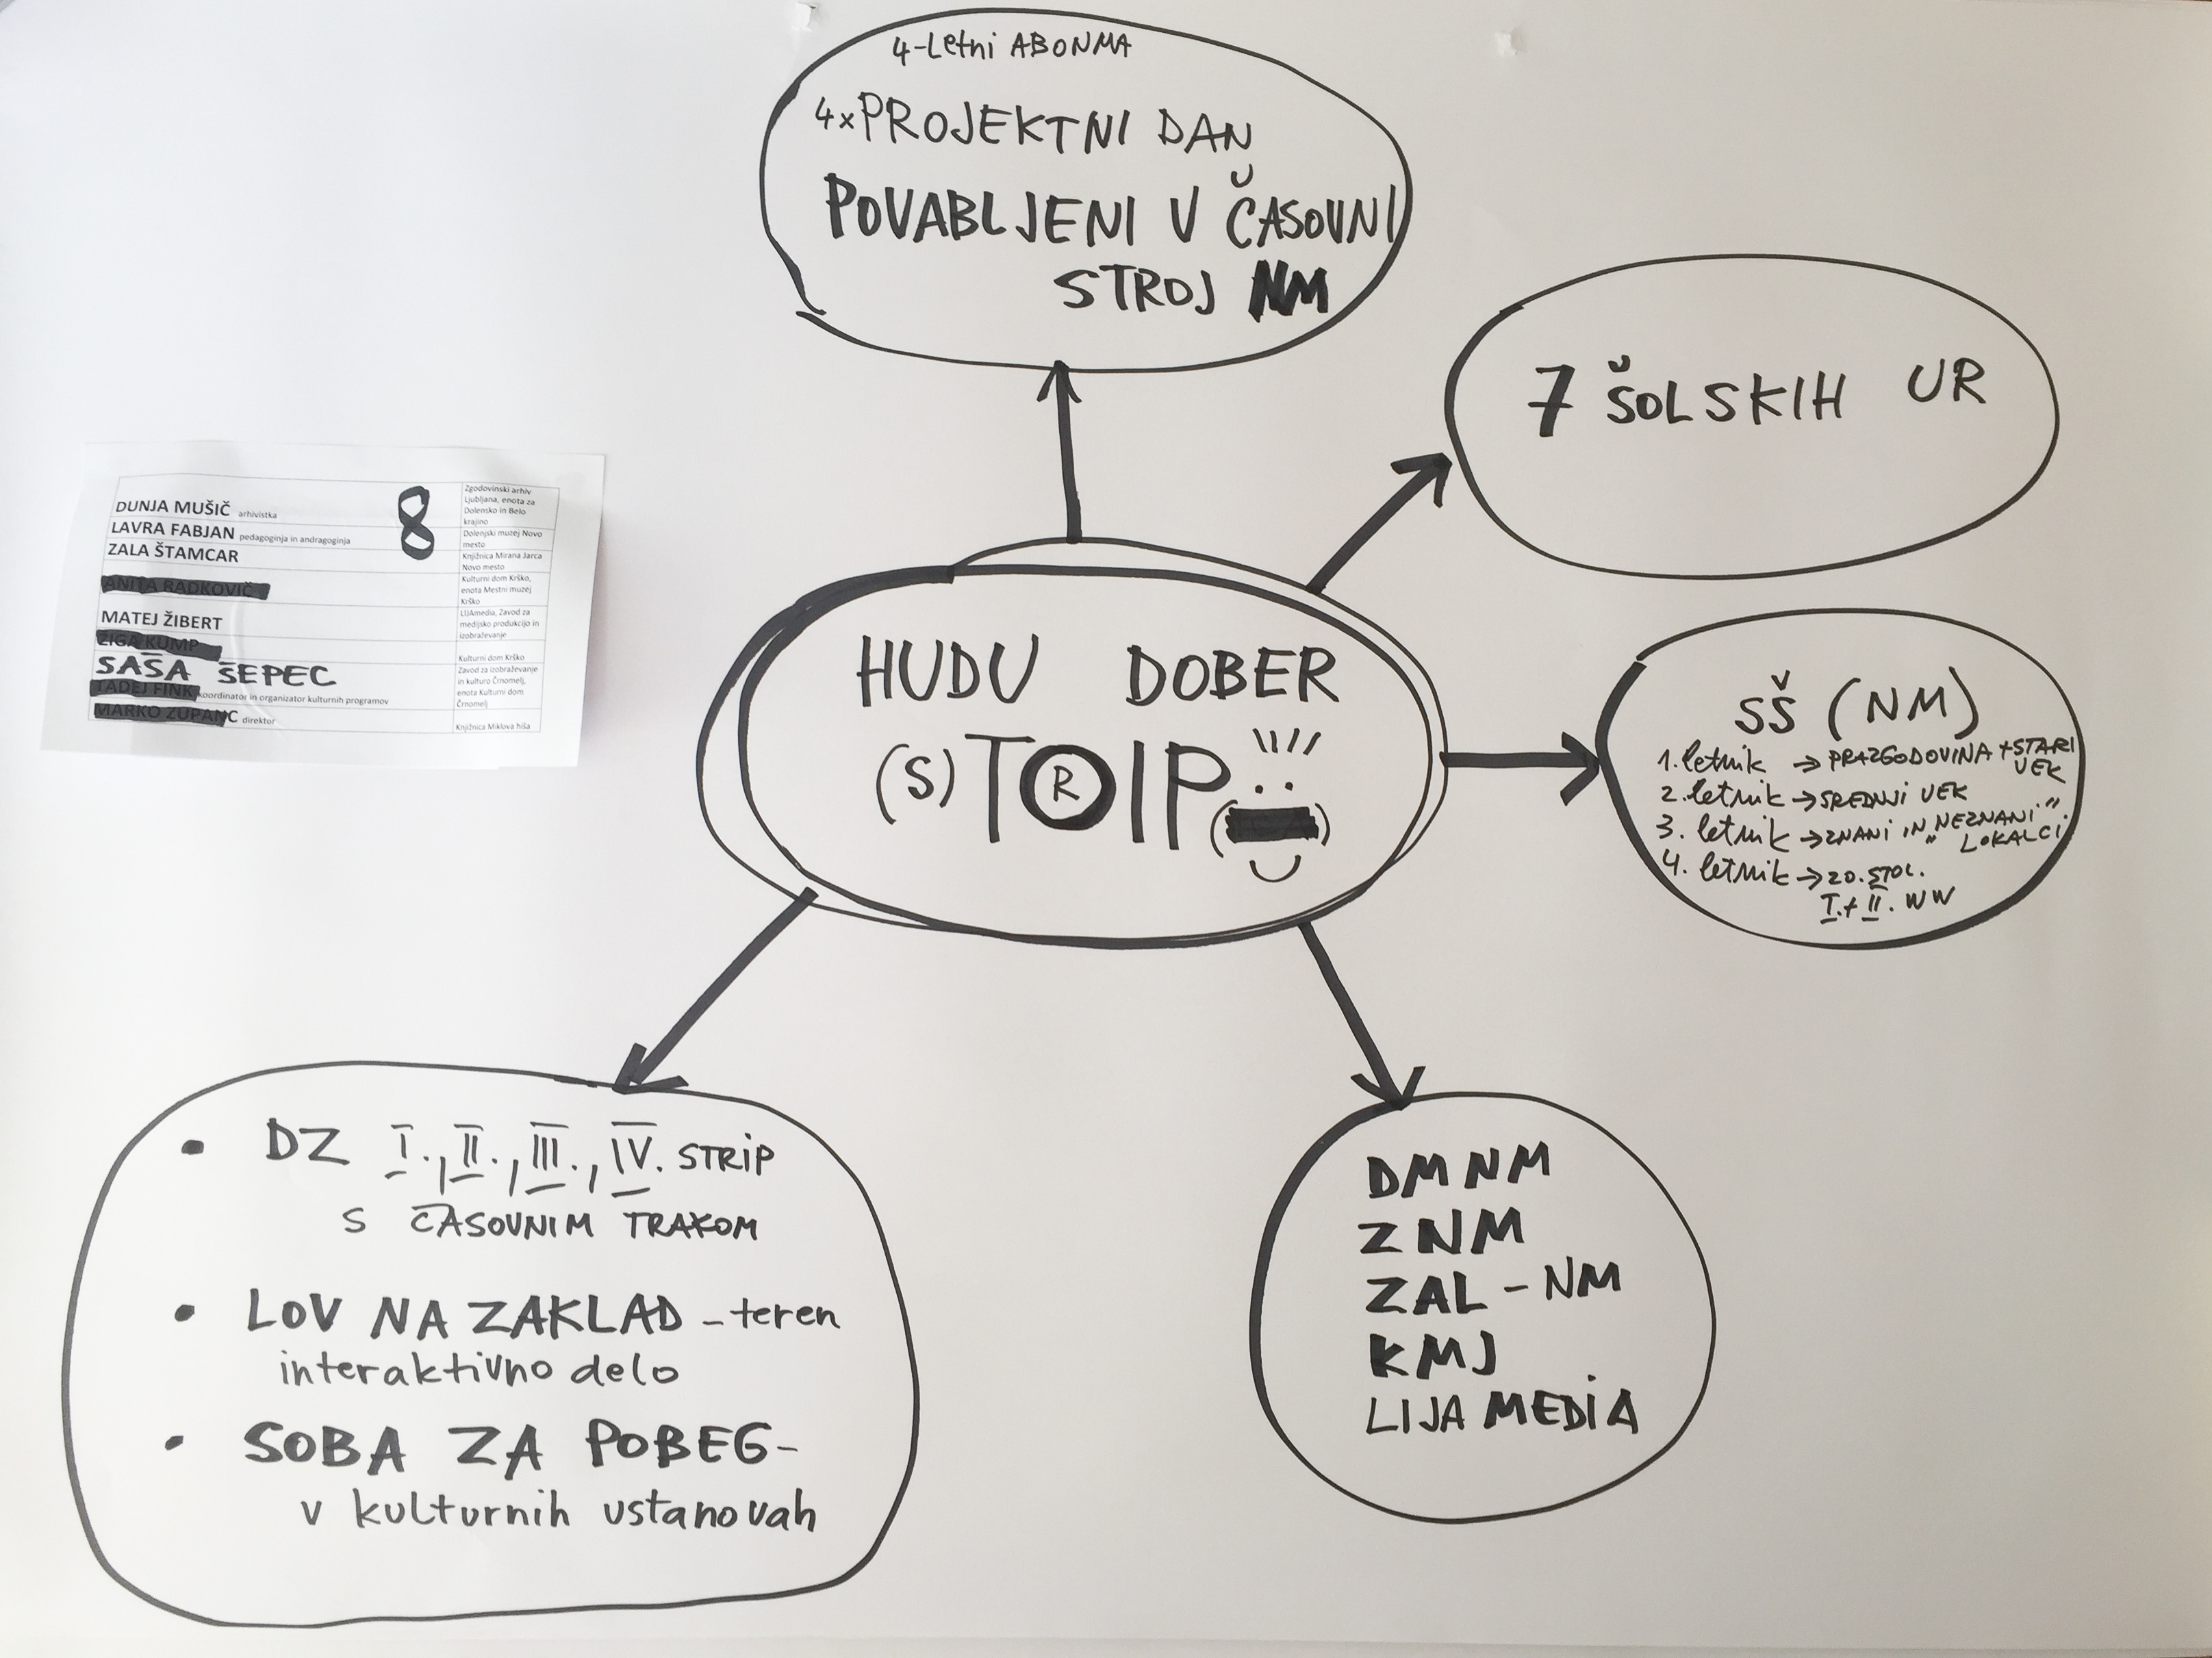 4-Letni ABONMA
4x PROJEKTNI DAN
POVABLJENI V ČASOVNI
STROJ NM
7 ŠOLSKIH UR
DUNJA MUŠIČ arhivistka
LAVRA FABJAN pedagoginja in andragoginja
ZALA ŠTAMCAR
ANITA RADKOVIČ
MATEJ ŽIBERT
ŽIGA KUMP
SAŠA ŠEPEC
TADEJ FINK koordinator in organizator kulturnih programov
MARKO ZUPANC direktor
8
Zgodovinski arhiv
Ljubljana, enota za
Dolensko in Belo
krajino
Dolenjski muzej Novo
mesto
Knjižnica Mirana Jarca
Novo mesto
Kulturni dom Krško,
enota Mestni muzej
Krško
LIJAmedia, Zavod za
medijsko produkcijo in
izobraževanje
Kulturni dom Krško
Zavod za izobraževanje
in kulturo Črnomelj,
enota Kulturni dom
Črnomelj
Knjižnica Miklova hiša
HUDU DOBER
(S)TRIP
SŠ (NM)
1. letnik → PRAZGODOVINA + STARI
VEK
2. letnik → SREDNJI VEK
3. letnik → ZNANI IN "NEZNANI"
LOKALCI
4. letnik → 20. STOL.
I. + II. WW
• DZ I., II., III., IV. STRIP
S ČASOVNIM TRAKOM
• LOV NA ZAKLAD - teren
interaktivno delo
• SOBA ZA POBEG -
v kulturnih ustanovah
DMNM
ZNM
ZAL - NM
KMJ
LIJA MEDIA